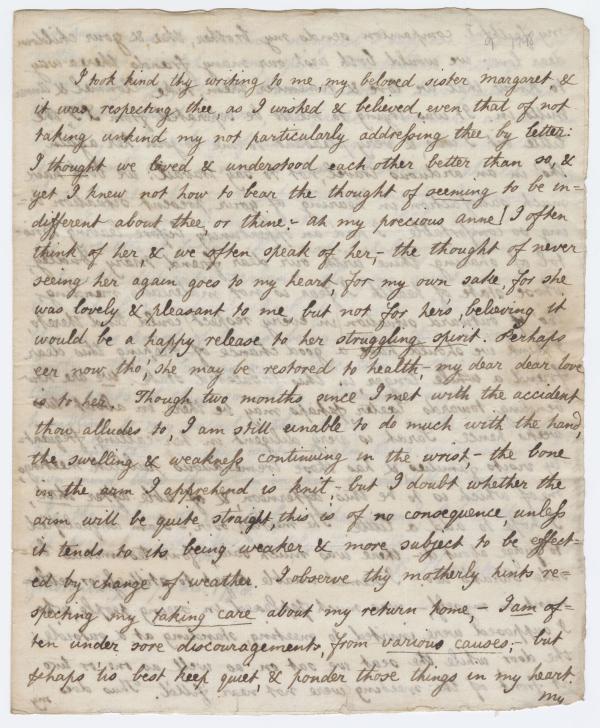 I took kind thy writing to me, my beloved sister margaret, &
it was respecting thee, as I wished & believed, even that of not
taking unkind my not particularly addressing thee by letter:
I thought we loved & understood each other better than so, &
yet I knew not how to bear the thought of seeming to be in=
different about thee, or thine:- ah my precious anne! I often
think of her, & we often speak of her,- the thought of never
seeing her again goes to my heart, for my own sake, for she
was lovely & pleasant to me, but not for her's, believing it
would be a happy release to her struggling spirit. Perhaps
eer now tho', she may be restored to health,- my dear dear love
is to her. Though two months since I met with the accident
thou alludes to, I am still unable to do much with the hand,
the swelling & weakness continuing in the wrist,- the bone
in the arm I apprehend is knit,- but I doubt whether the
arm will be quite straight, this is of no consequence, unless
it tends to its being weaker & more subject to be effect-
ed by change of weather. I observe thy motherly hints re=
specting my taking care about my return home,- I am of=
ten under sore discouragements, from various causes,- but
perhaps 'tis best keep quiet, & ponder those things in my heart.
my